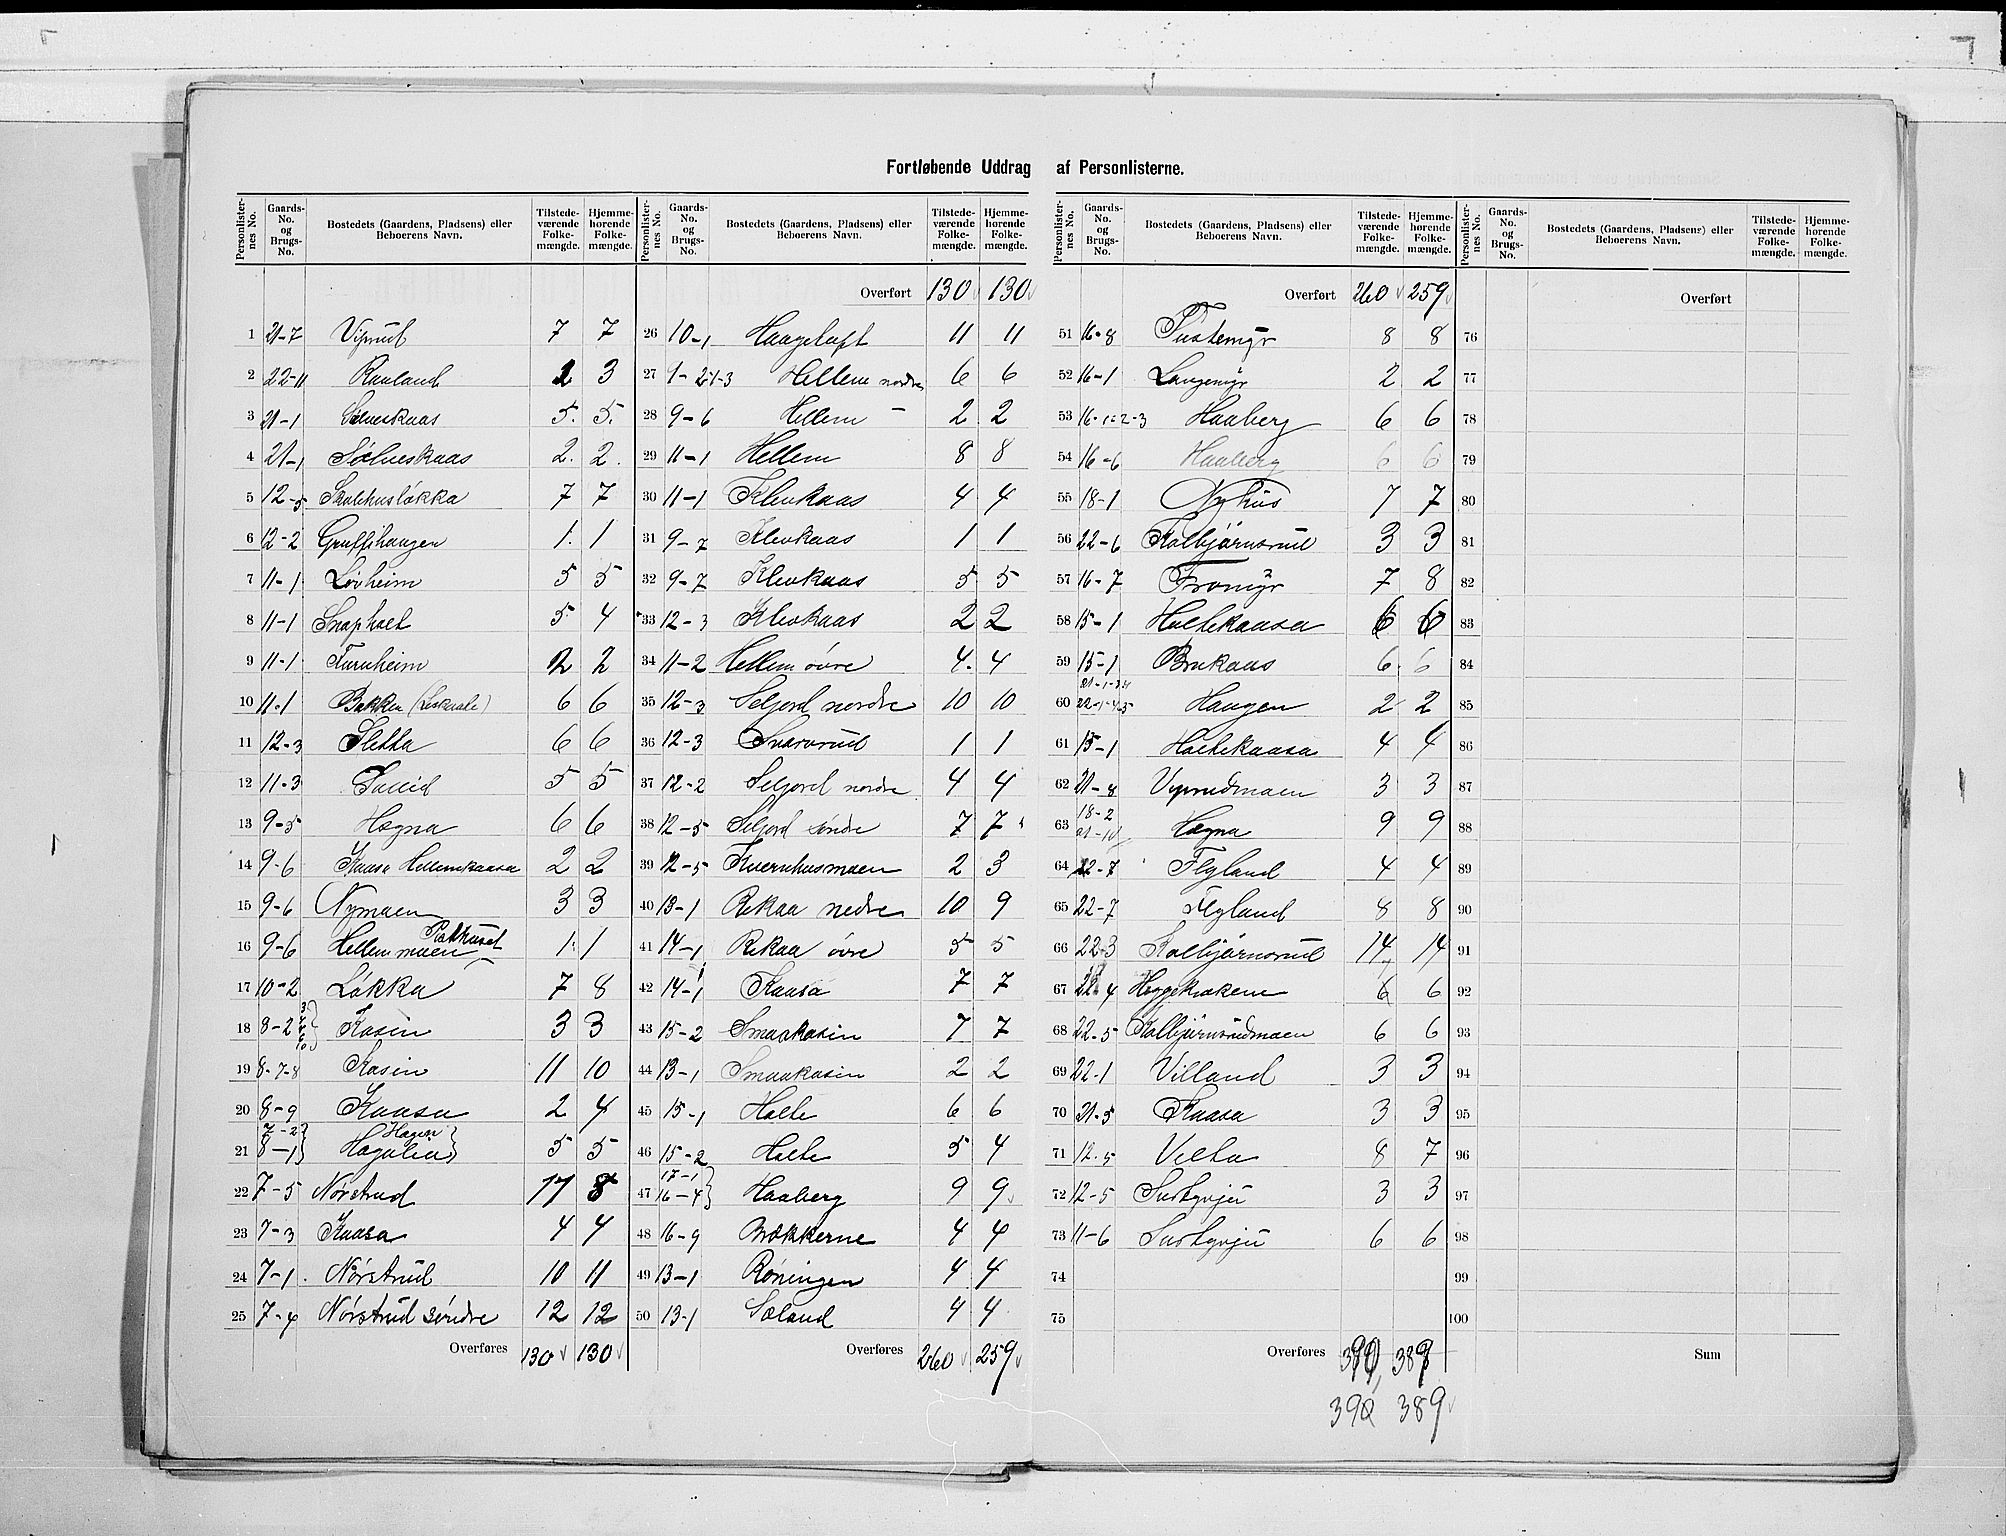 Fortløbende Uddrag af Personlisterne.
Personlisternes No. | Gaards-No. og Brugs-No. | Bostedets (Gaardens, Pladsens) eller Beboerens Navn. | Tilstedeværende Folkemængde. | Hjemmehørende Folkemængde.
1 21-7 Viprud 7 7
2 22-11 Rauland 2 3
3 21-1 Sølveskaas 5. 5.
4 21-1 Sølveskaas 2. 2.
5 12-5 Skolehusløkka 7 7
6 12-2 1. 1
7 11-1 Løvheim 5 5
8 11-1 Snapholt 5 4
9 11-1 Furuheim 2 2
10 11-1 Bakken 6 6
11 12-3 Sletta 6 6
12 11-3 5 5
13 9-5 Hægna 6 6
14 9-6 Kaasa Hellemkaasa 2 2
15 9-6 Nymaen 3 3
16 9-6 Hellemmaen 1. 1
17 10-2 Løkka 7 8
18 8-2 Kasin 3 3
19 8-7-8 Kasin 11 10
20 8-9 Kaasa 2 4
21 7-2 8-1 5 5
22 7-5 Nørstrud 17 8
23 7-3 Kaasa 4 4
24 7-1. Nørstrud 10 11
25 7-4 Nørstrud søndre 12 12
Overføres 130 130
Personlisternes No. | Gaards-No. og Brugs-No. | Bostedets (Gaardens, Pladsens) eller Beboerens Navn. | Tilstedeværende Folkemængde. | Hjemmehørende Folkemængde.
Overført 130 130
26 10-1 Haugeluft 11 11
27 9-2-1-3 Hellem nordre 6 6
28 9-6 Hellem - 2 2
29 11-1 Hellem 8 8
30 11-1 Klevkaas 4 4
31 9-7 Klevkaas 1 1
32 9-7 Klevkaas 5 5
33 12-3 Klevkaas 2 2
34 11-2 Hellem övre 4. 4
35 12-3 Seljord nordre 10 10
36 12-3 Svarvrud 1 1
37 12-2 Seljord nordre 4 4
38 12-5 Seljord söndre 7 7
39 12-5 Kvernhusmoen 2 3
40 13-1 Rekaa nedre 10 9
41 14-1 Rekaa övre 5 5
42 14-1 Kaasa 7 7
43 15-2 Smaakasin 7 7
44 13-1 Smaakasin 2 2
45 15-1 Holte 6 6
46 15-2 Holte 5 4
47 17-1 16-4 Haaberg 9 9
48 16-9 Brokkerne 4 4
49 13-1 Röningen 4 4
50 13-1 Soland 4 4
Overføres 260 259
Personlisternes No. | Gaards-No. og Brugs-No. | Bostedets (Gaardens, Pladsens) eller Beboerens Navn. | Tilstedeværende Folkemængde. | Hjemmehørende Folkemængde.
Overført 260 259
51 16-8 Tustemyr 8 8
52 16-1 Langemyr 2 2
53 16-1-2-3 Haaberg 6 6
54 16-6 Haaberg 6 6
55 18-1 Nyhus 7 7
56 22-6 Kolbjörnsrud 3 3
57 16-7 Tromyr 7 8
58 15-1 Holtekaasa 6 6
59 15-1 Brukaas 6. 6
60 Haugen 2 2
61 15-1 Holtekaasa 4 4
62 21-8 Viprudmoen 3 3
63 18-2 21-10 Hægna 9 9
64 22-7 Flyland 4 4
65 22-7 Flyland 8 8
66 22-3 Kolbjörnsrud 14 14
67 22-4 6 6
68 22-5 Kolbjörnsrudmoen 6 6
69 22-1 Villand 3 3
70 21-5 Kaasa 3 3
71 12-5 Velta 8 7
72 12-5 3 3
73 11-6 6 6
74
75
Overføres 390, 389
390 389
Personlisternes No. | Gaards-No. og Brugs-No. | Bostedets (Gaardens, Pladsens) eller Beboerens Navn. | Tilstedeværende Folkemængde. | Hjemmehørende Folkemængde.
Overført
76
77
78
79
80
81
82
83
84
85
86
87
88
89
90
91
92
93
94
95
96
97
98
99
100
Sum